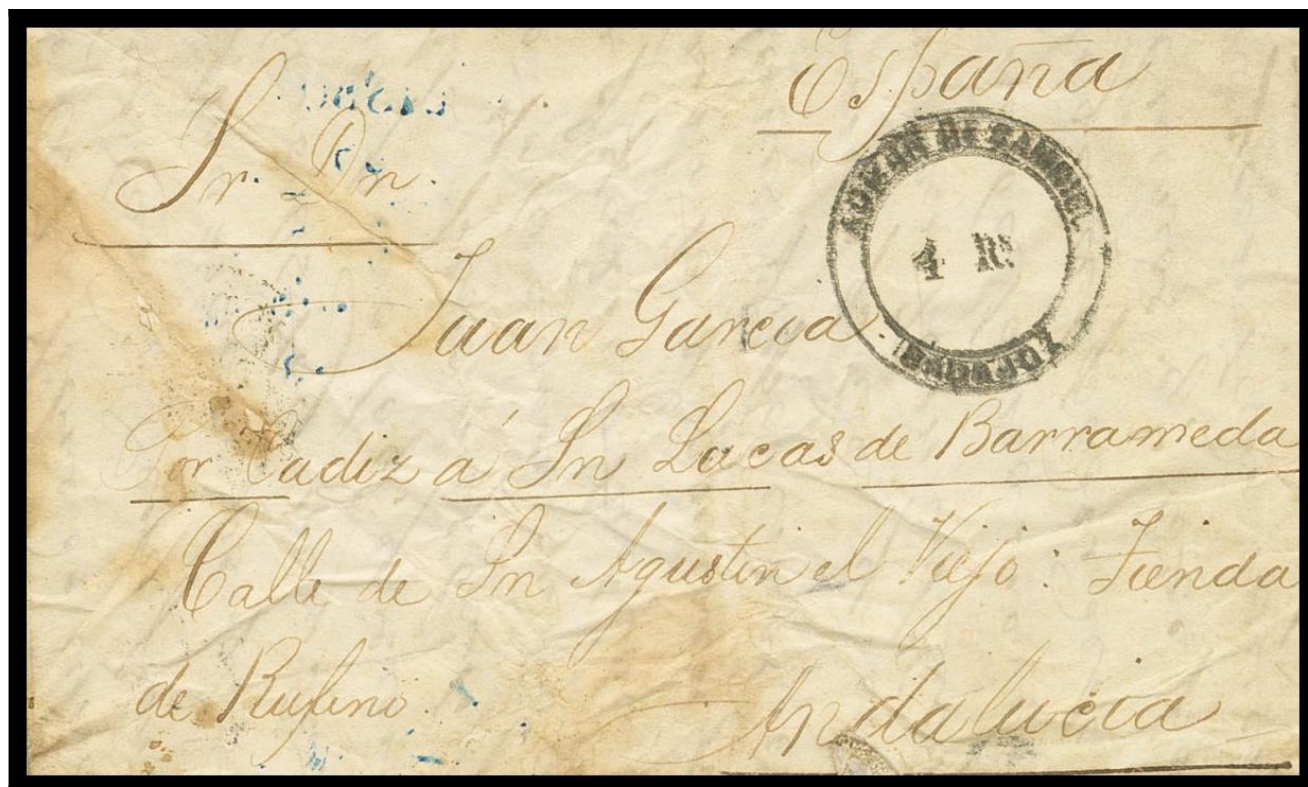 España
Sr. Dn.
4 Rs
Juan Garcia
Por Cadiz á Sn Lucas de Barrameda
Calle de Sn Agustin el Viejo: Tienda
de Rufino.
Andalucia